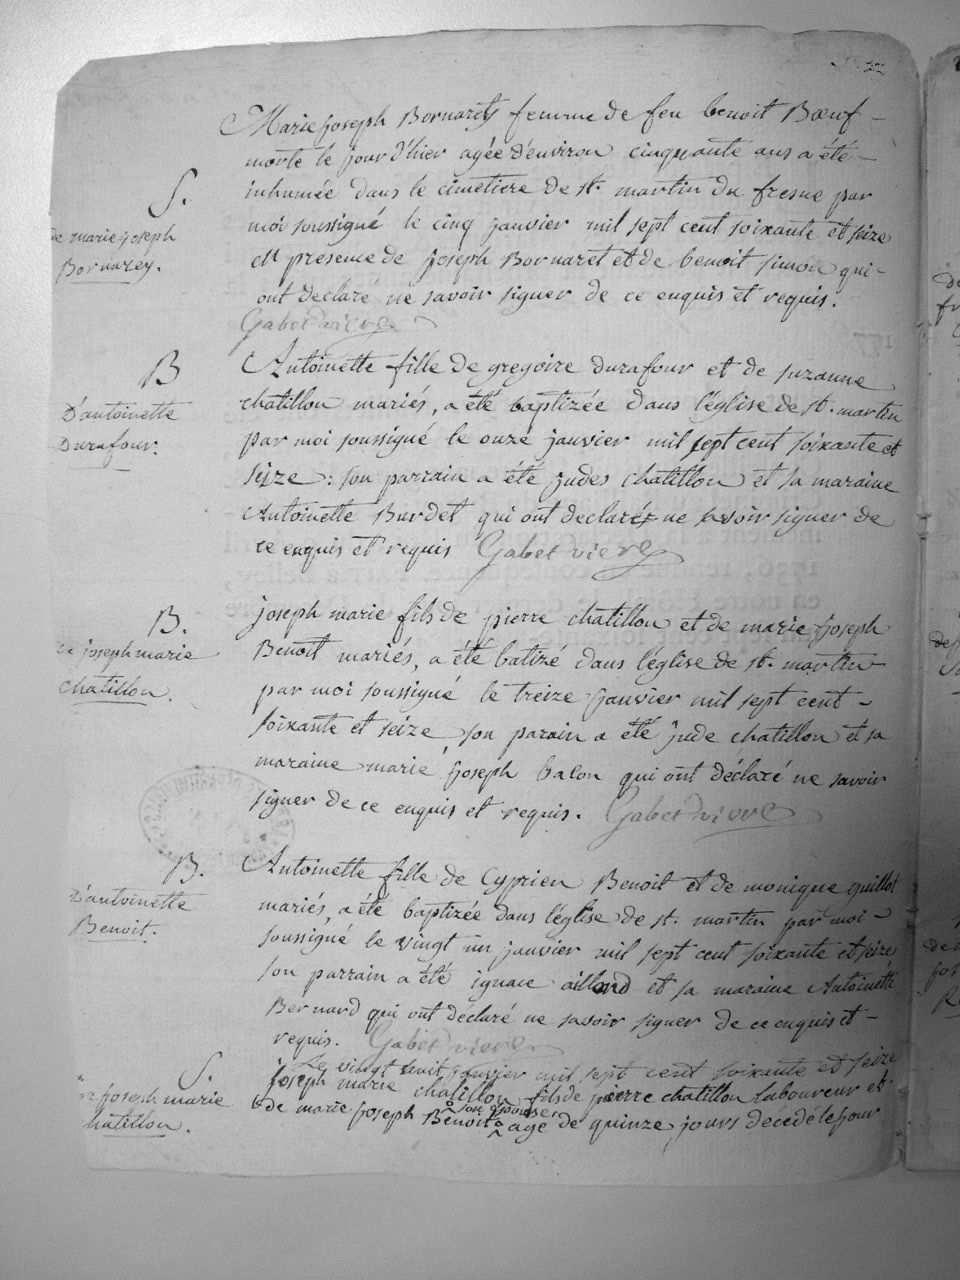 Marie joseph Bornarety femme de feu benoit Bœuf -
morte le jour d'hier agée d'environ cinquante ans a été -
inhumée dans le cimetiere de st. martin du fresne par
moi soussigné le cinq janvier mil sept cent soixante et seize
S.
de marie joseph
Bornarey.
en presence de joseph Bornaret et de benoit simon qui -
ont declaré ne savoir signer de ce enquis et requis.
Gabet vicre
B
D'antoinette
Durafour.
Antoinette fille de gregoire durafour et de suzanne
chatillon mariés, a été baptizée dans l'église de st. martin
par moi soussigné le onze janvier mil sept cent soixante et
seize : son parrain a été judes chatillon et sa maraine
Antoinette Burdet qui ont declaré ne savoir signer de
ce enquis et requis Gabet vicre
B.
de joseph marie
chatillon.
joseph marie fils de pierre chatillon et de marie joseph
Benoit mariés, a été batizé dans l'église de st. martin
par moi soussigné le treize janvier mil sept cent -
soixante et seize son parain a été jude chatillon et sa
maraine marie joseph balon qui ont déclaré ne savoir
signer de ce enquis et requis. Gabet vicre
B.
D'antoinette
Benoit.
Antoinette fille de Cyprien Benoit et de monique guillot
mariés, a été baptizée dans l'église de st. martin par moi -
soussigné le vingt un janvier mil sept cent soixante et seize
son parrain a été ignace et sa maraine Antoinette
Bernard qui ont déclaré ne savoir signer de ce enquis et -
requis. Gabet vicre
S.
de joseph marie
chatillon.
Le vingt huit janvier mil sept cent soixante et seize
joseph marie chatillon fils de pierre chatillon laboureur et
de marie joseph Benoit son épouse age de quinze jours décédé le jour